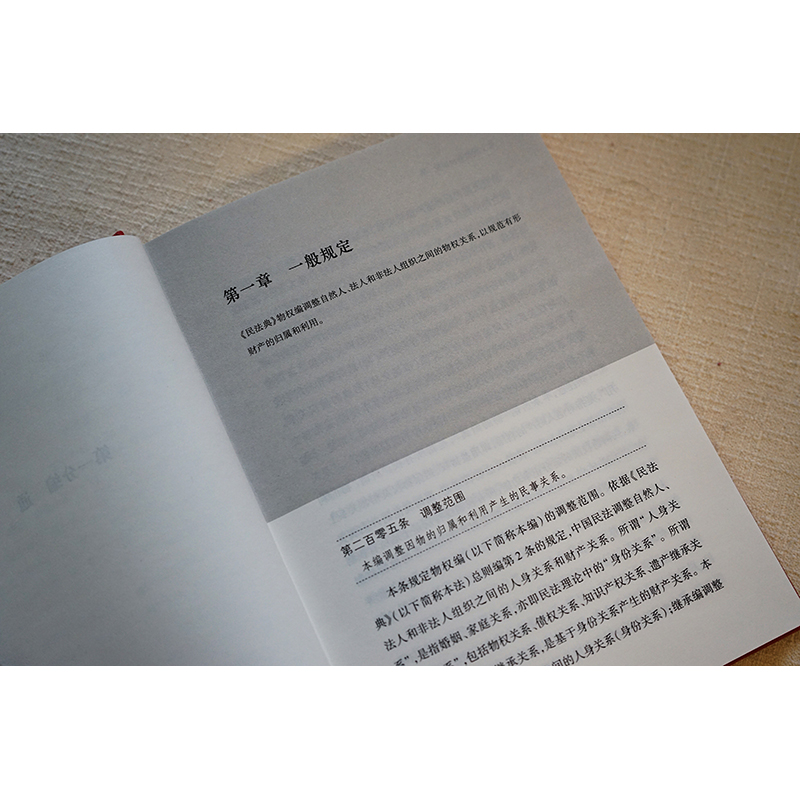 第一章 一般规定
《民法典》物权编调整自然人、法人和非法人组织之间的物权关系,以规范有形
财产的归属和利用。
第二百零五条 调整范围
本编调整因物的归属和利用产生的民事关系。
本条规定物权编(以下简称本编)的调整范围。依据《民法
典》(以下简称本法)总则编第2条的规定,中国民法调整自然人、
法人和非法人组织之间的人身关系和财产关系。所谓“人身关
系”,是指婚姻、家庭关系,亦即民法理论中的“身份关系”。所谓
系”,包括物权关系、债权关系、知识产权关系、遗产继承关
继承关系,是基于身份关系产生的财产关系。本
间的人身关系(身份关系);继承编调整